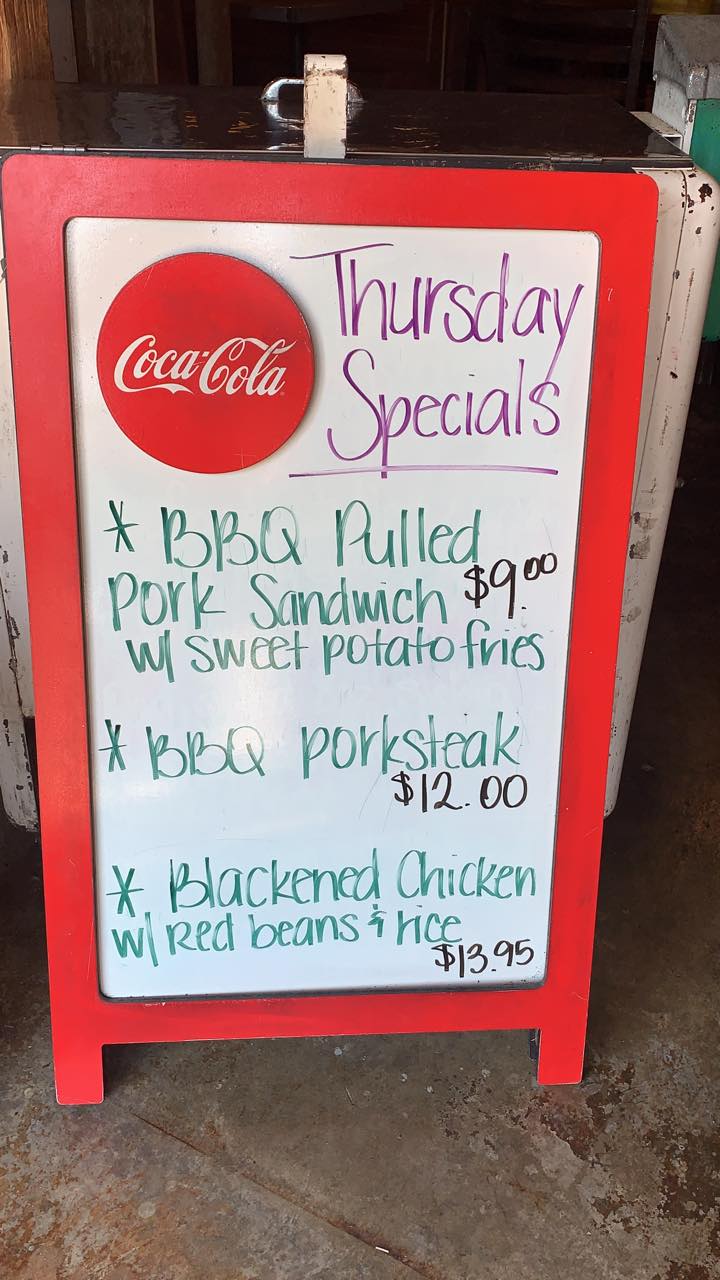 Coca-Cola
Thursday
Specials
* BBQ Pulled
Pork Sandwich $9.00
w/ sweet potato fries
* BBQ porksteak
$12.00
* Blackened Chicken
w/ Red beans & rice
$13.95